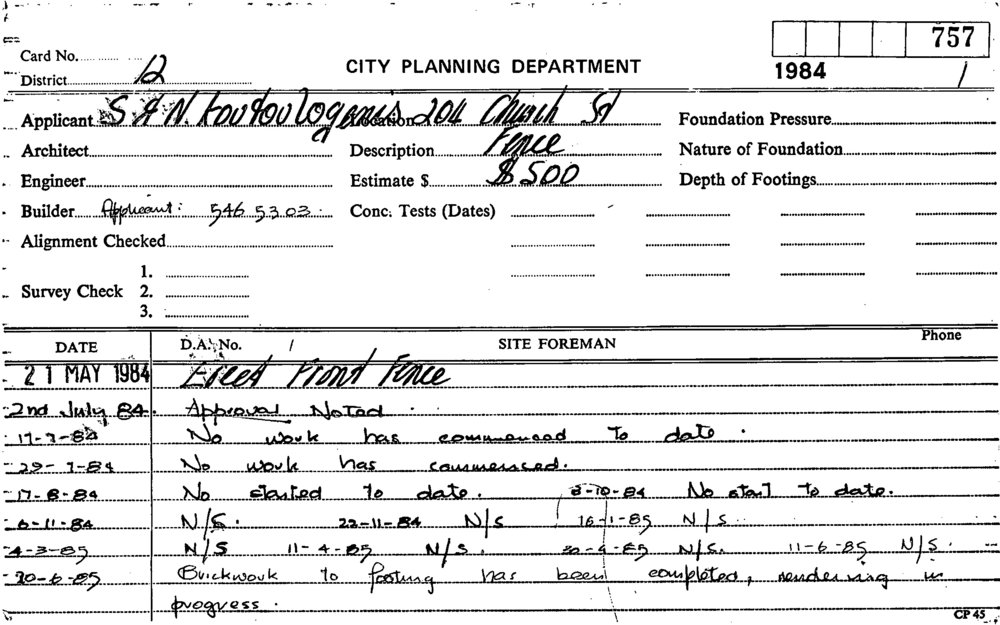 757
Card No.
District 12
CITY PLANNING DEPARTMENT
1984 /
Applicant S & N. Koutoulogenis Location 204 Church St Foundation Pressure
Architect Description Fence Nature of Foundation
Engineer Estimate $ $500 Depth of Footings
Builder Applicant: 546 5303. Conc. Tests (Dates)
Alignment Checked
1.
Survey Check 2.
3.
DATE D.A. No. / SITE FOREMAN Phone
21 MAY 1984 Erect Front Fence
2nd July 84. Approval Noted.
17-7-84 No work has commenced to date.
29-7-84 No work has commenced.
17-8-84 No started to date. 8-10-84 No start to date.
6-11-84 N/S. 22-11-84 N/S 16-1-85 N/S.
4-3-85 N/S 11-4-85 N/S. 30-4-85 N/S. 11-6-85 N/S.
20-6-85 Brickwork to footing has been completed, rendering in
progress.
CP 45